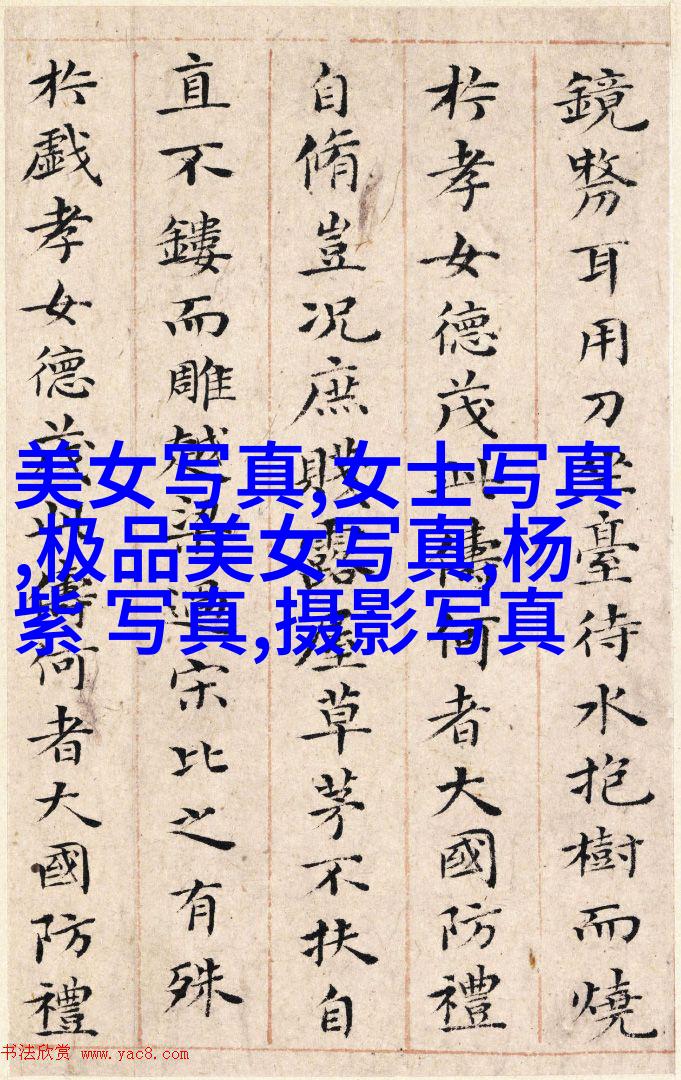 鏡剺耳用刀坐臺待水抱樹而燒
扵孝女德茂此儔何者大國防禮
自脩豈况庶賤露屋草茅不扶自
直不鏤而雕越梁過宋比之有殊
扵戯孝女德茂此儔何者大國防禮
美女写真,女士写真
,极品美女写真,杨
紫 写真,摄影写真
书法欣赏 www.yac8.com